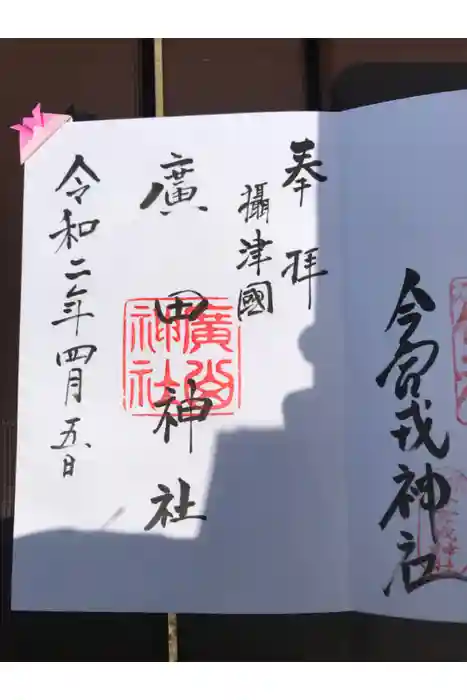 今宮戎神社
奉拝
攝津國
廣田神社
令和二年四月五日